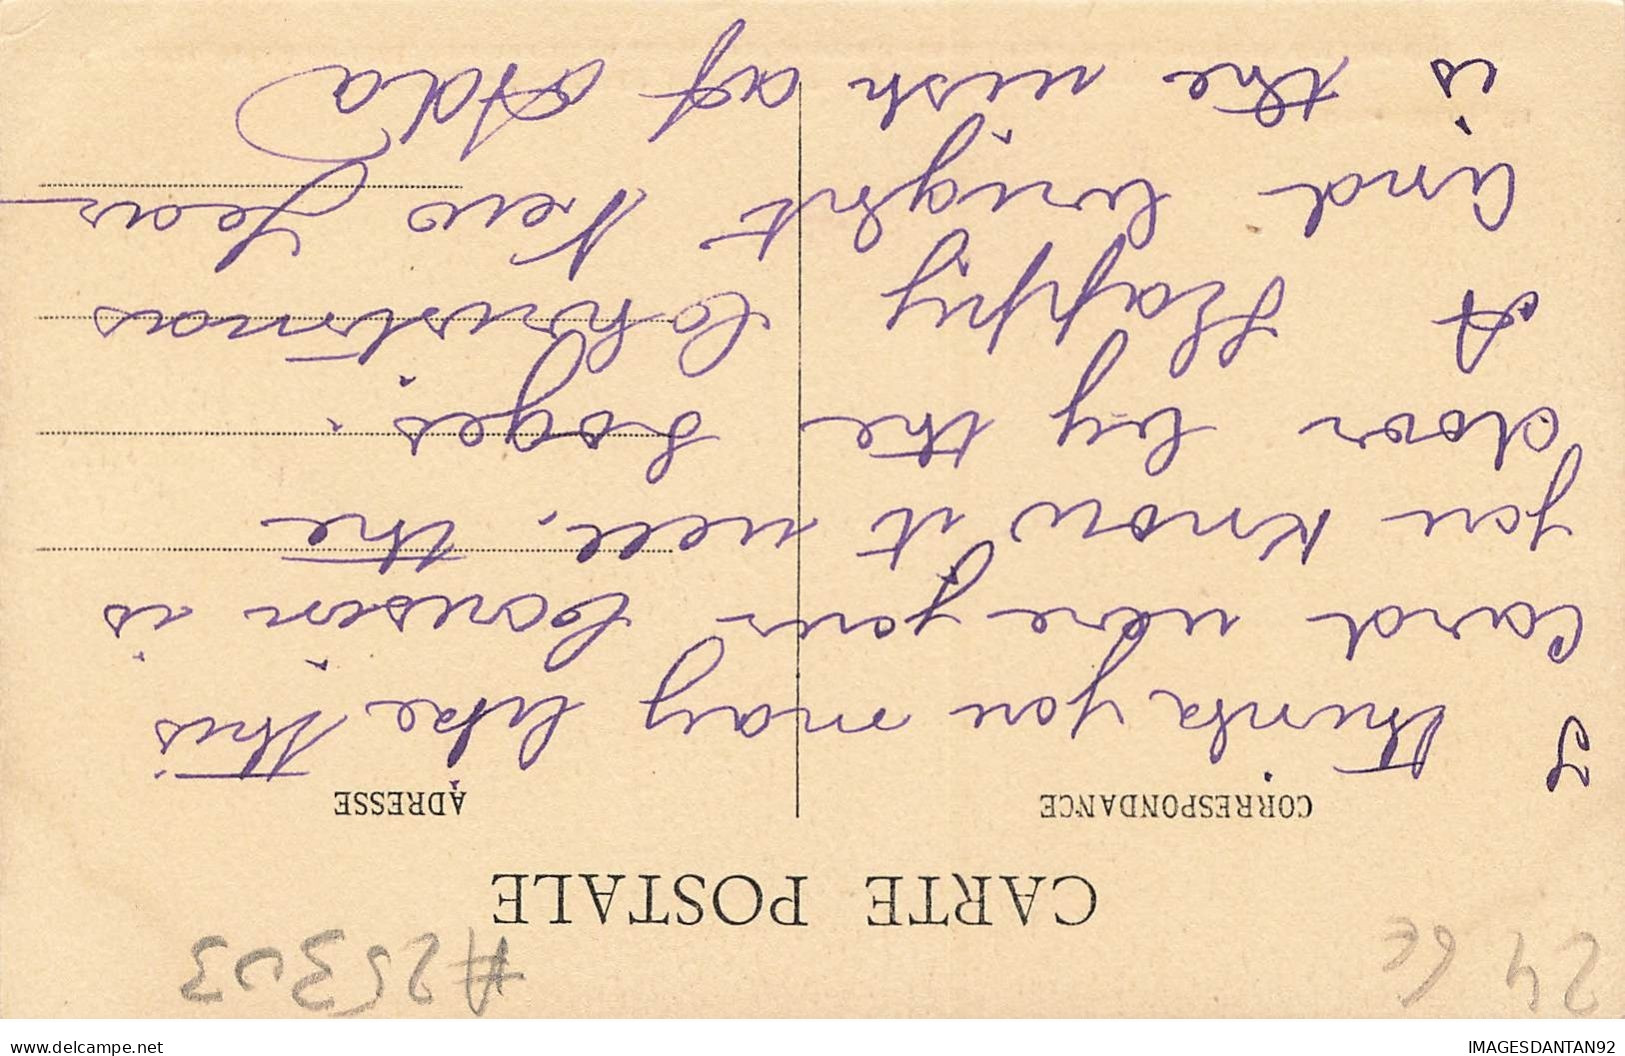 24 6e
#25303
CARTE POSTALE
CORRESPONDANCE
ADRESSE
I think you may like this
Card were your Cousin is
you know it well, the
door by the Loges.
A Happy Christmas
and bright New Year
is the wish of Ada
IMAGESDANTAN92